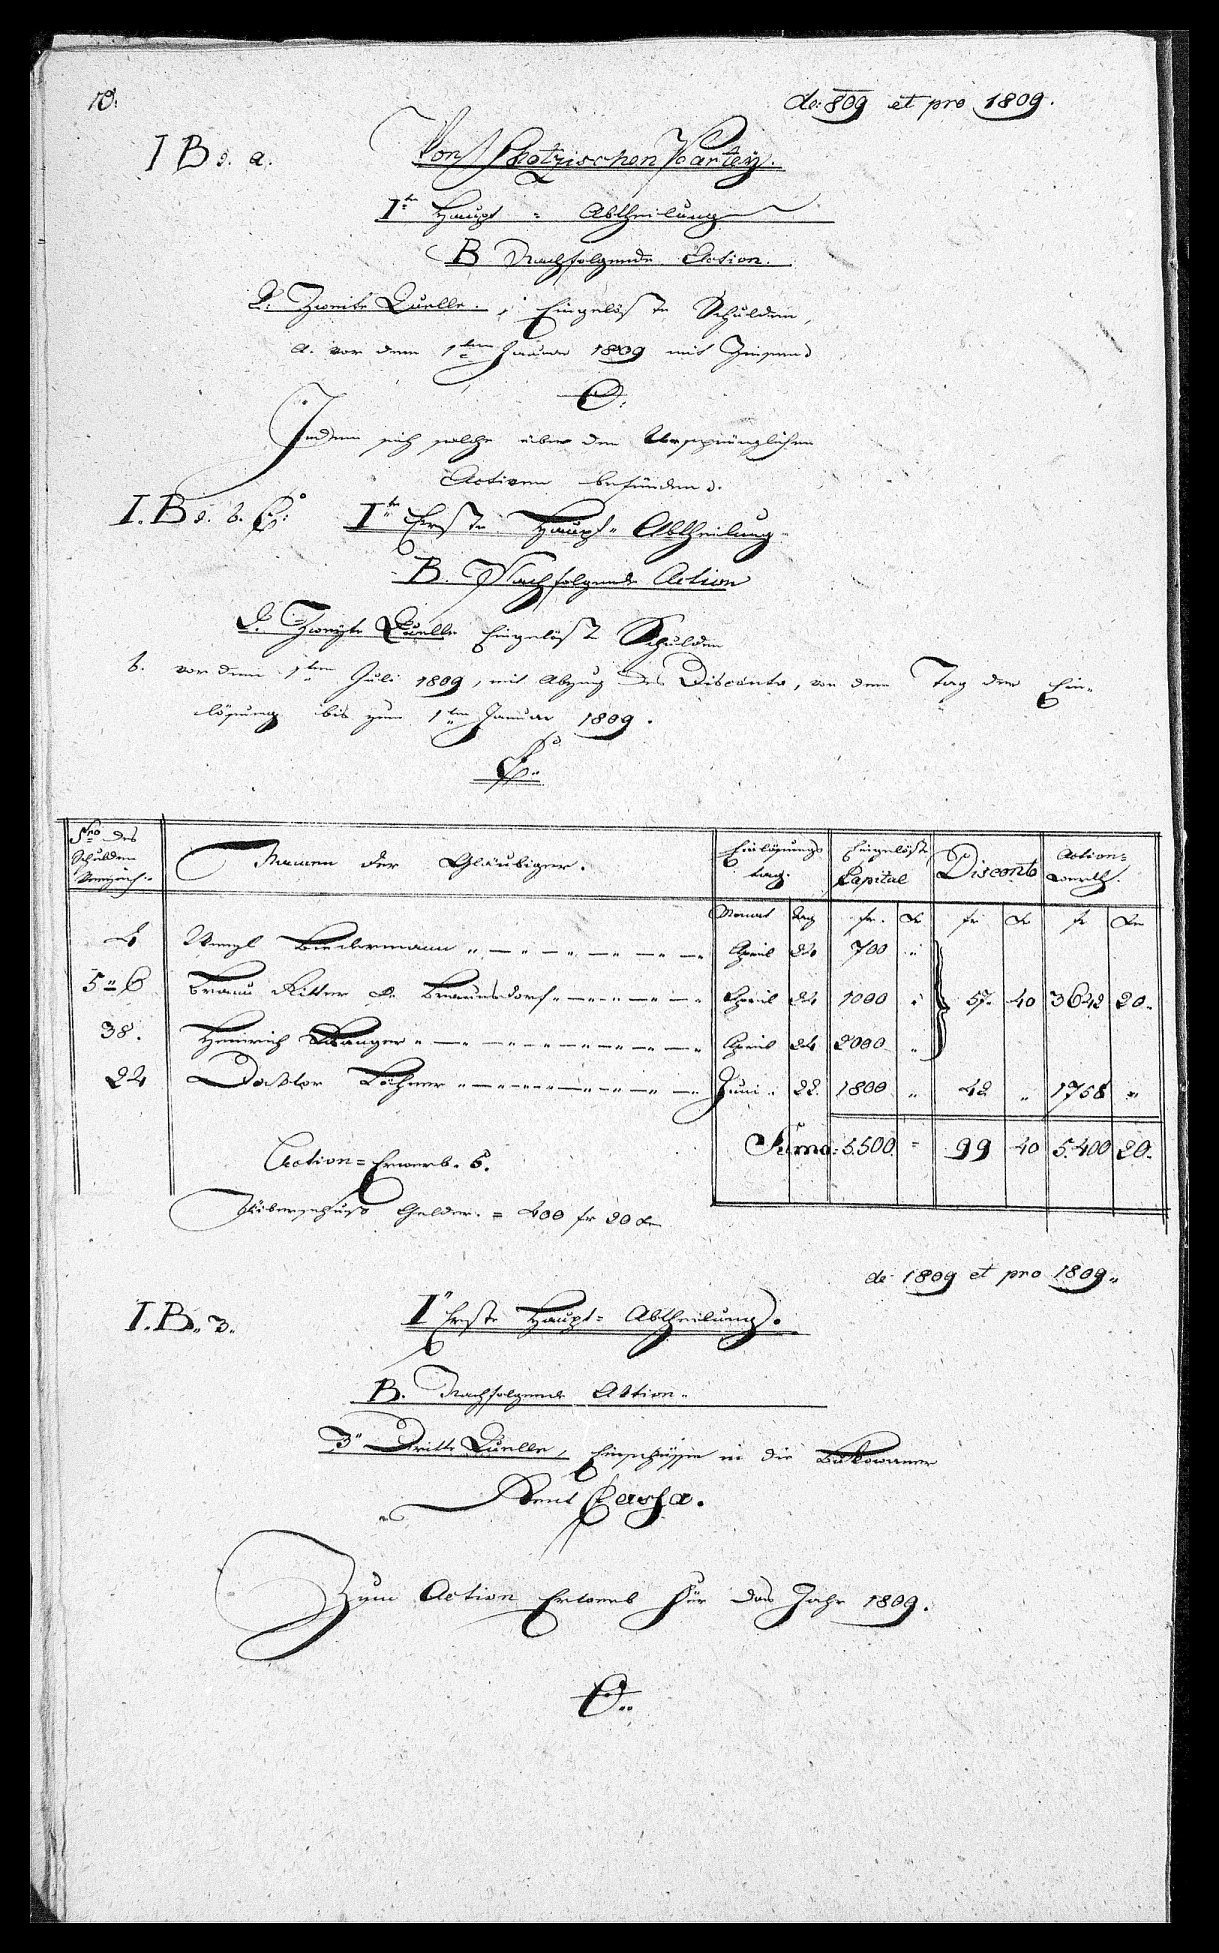 10.
de: 809 et pro 1809.
I B 2. a.
Von Protzischen Partey.
Ite Haupt = Abtheilung
B Nachfolgende Action.
2. Zweite Quelle. Eingelößte Schulden,
a. vor dem 1ten Januar 1809 mit Zinsen
O.
Indem sich solche über den Ursprünglichen
Activen befinden.
I. B 2. b.
Ite Erste Haupt = Abtheilung
B. Nachfolgende Action
2. Zweyte Quelle Eingelößte Schulden
b. vor dem 1ten Juli 1809, mit Abzug des Disconto, von dem Tag der Ein=
lösung bis zum 1ten Januar 1809.
Nro des Schulden Verzeich:
Namen der Gläubiger.
Einlösungs tag.
Eingelößt Capital
Disconto
Action= werth.
Monat Tag fr. Xr fr Xr fr Xr
4 Wenzl Biedermann April 24 700 "
5 " 6 Braun Ritter v. Braunsdorf April 24 1000 " 57 40 3642 20
38. Heinrich Wanger April 24 2000 "
24 Doktor Löhner Juni 22. 1800 " 42 " 1758 "
Suma: 5,500 " 99 40 5,400 20
Action = Erwerb. 5.
Überschuß Gelder. = 400 fr 20 Xr
de 1809 et pro 1809
I. B. 3.
I" Erste Haupt = Abtheilung.
B. Nachfolgende Aktion
3" Dritte Quelle, Einschüsse in die Bukowiner
Rent Cassa.
Zum Action Erwerb für das Jahr 1809.
O..